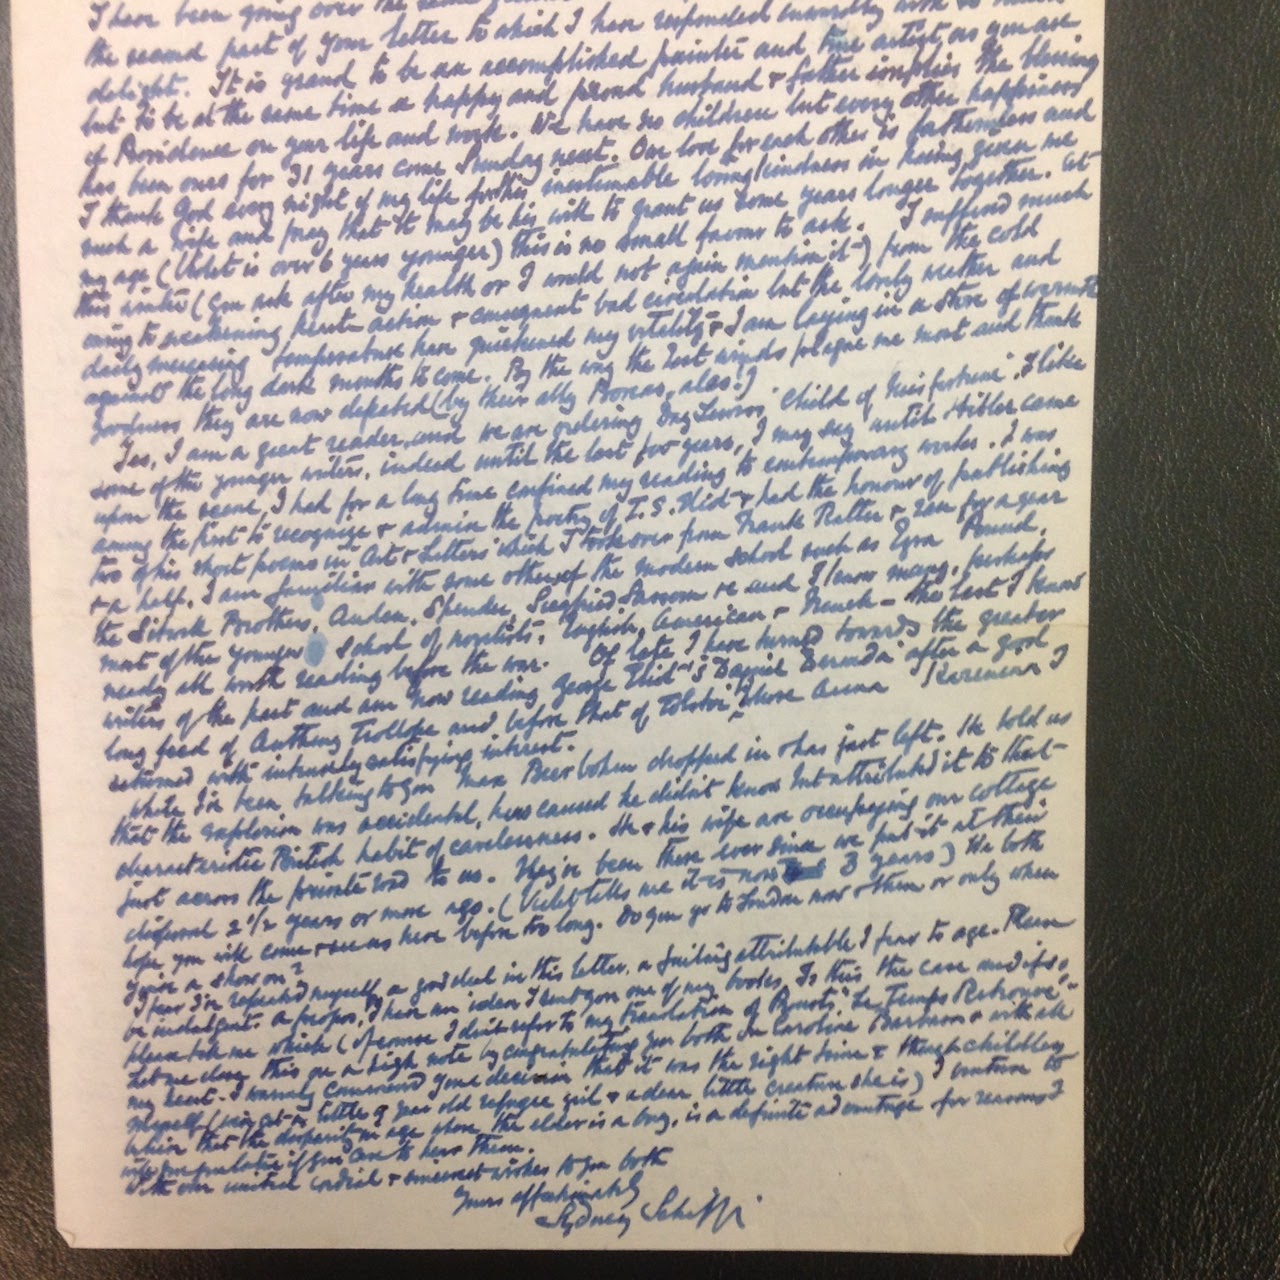 I have been going over the same
the second part of your letter to which I have responded inwardly with so much
delight. It is grand to be an accomplished painter and fine artist as you are
but to be at the same time a happy and proud husband & father implies the blessing
of Providence on your life and work. We have no children but every other happiness
has been ours for 31 years come Sunday next. Our love for each other is fathomless and
I thank God every night of my life for this inestimable loving kindness in having given me
such a wife and pray that it may be his will to grant us some years longer together. At
my age (Violet is over 6 years younger) this is no small favour to ask. I suffered much
this winter (you ask after my health or I would not again mention it) from the cold
owing to weakening heart action & consequent bad circulation but the lovely weather and
daily increasing temperature have quickened my vitality & I am laying in a store of warmth
against the long dark months to come. By the way the East winds plague me most and thank
goodness they are now defeated (by their ally Boreas, alas!)
Yes, I am a great reader and we are ordering Inez Lewis' 'Child of Misfortune'. I like
some of the younger writers, indeed until the last few years, I may say until Hitler came
upon the scene, I had for a long time confined my reading to contemporary works. I was
among the first to recognize & admire the poetry of T.S. Eliot & had the honour of publishing
two of his short poems in 'Art & Letters' which I took over from Frank Rutter & ran for a year
& a half. I am familiar with some others of the modern school such as Ezra Pound,
the Sitwell Brothers, Auden, Spender, Siegfried Sassoon &c and I know many, perhaps
most of the younger school of novelists, English, American & French – the last I know
nearly all worth reading before the war. Of late I have turned towards the greater
writers of the past and am now reading George Eliot's 'Daniel Deronda' after a good
long feed of Anthony Trollope and before that of Tolstoi whose Anna Karenina I
returned with intensely satisfying interest.
While I've been talking to you Max Beerbohm dropped in & has just left. He told us
that the explosion was accidental, how caused he didn't know but attributed it to that
characteristic British habit of carelessness. He & his wife are occupying our cottage
just across the private road to us. They've been there ever since we put it at their
disposal 2 1/2 years or more ago. (Violet tells me it is now 3 years) We both
hope you will come & see us here before too long. Do you go to London now & then or only when
you've a show on?
I fear I've repeated myself a good deal in this letter, a failing attributable I fear to age. Please
be indulgent. A propos, I have an idea I sent you one of my books. Is this the case and if so,
please tell me which (of course I don't refer to my translation of Proust's "Le Temps Retrouvé".
Let me close this on a high note by congratulating you both on Caroline Barbara & with all
my heart. I warmly commend your decision that it was the right time & though childless
myself (we've got a little 9 year old refugee girl & a dear little creature she is) I venture to
believe that the disparity in age, where the elder is a boy, is a definite advantage for reasons I
will expatiate if you care to hear them.
With our united cordial & sincerest wishes to you both
Yours affectionately
Sydney Schiff